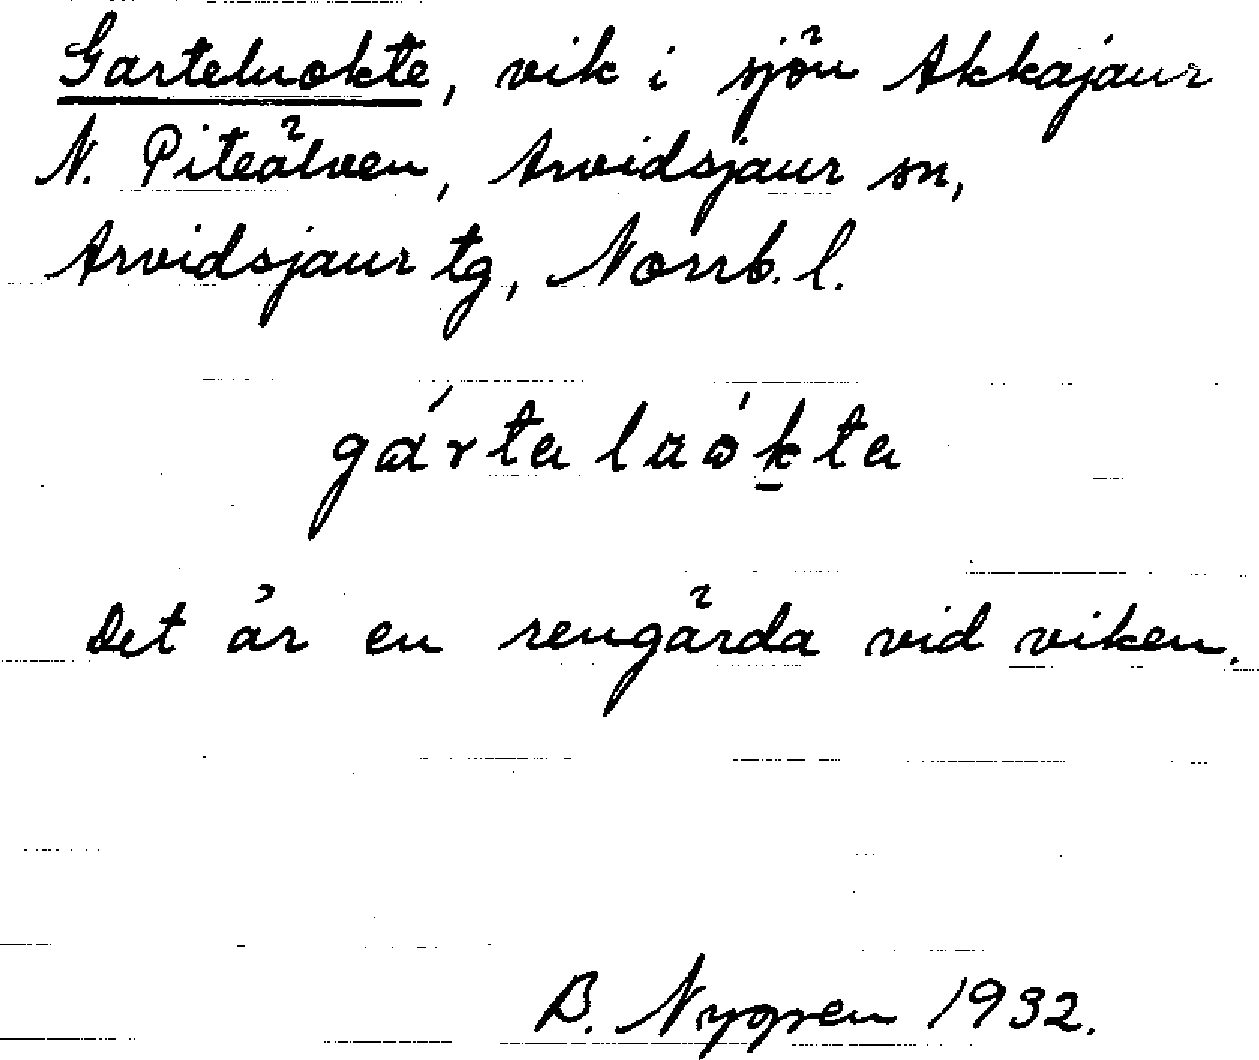 Garteluokte, vik i sjön Akkajaur
N. Piteälven, Arvidsjaur sn,
Arvidsjaur tg, Norrb. l.
gárta luók̲ta
Det är en rengärda vid viken.
B. Nygren 1932.